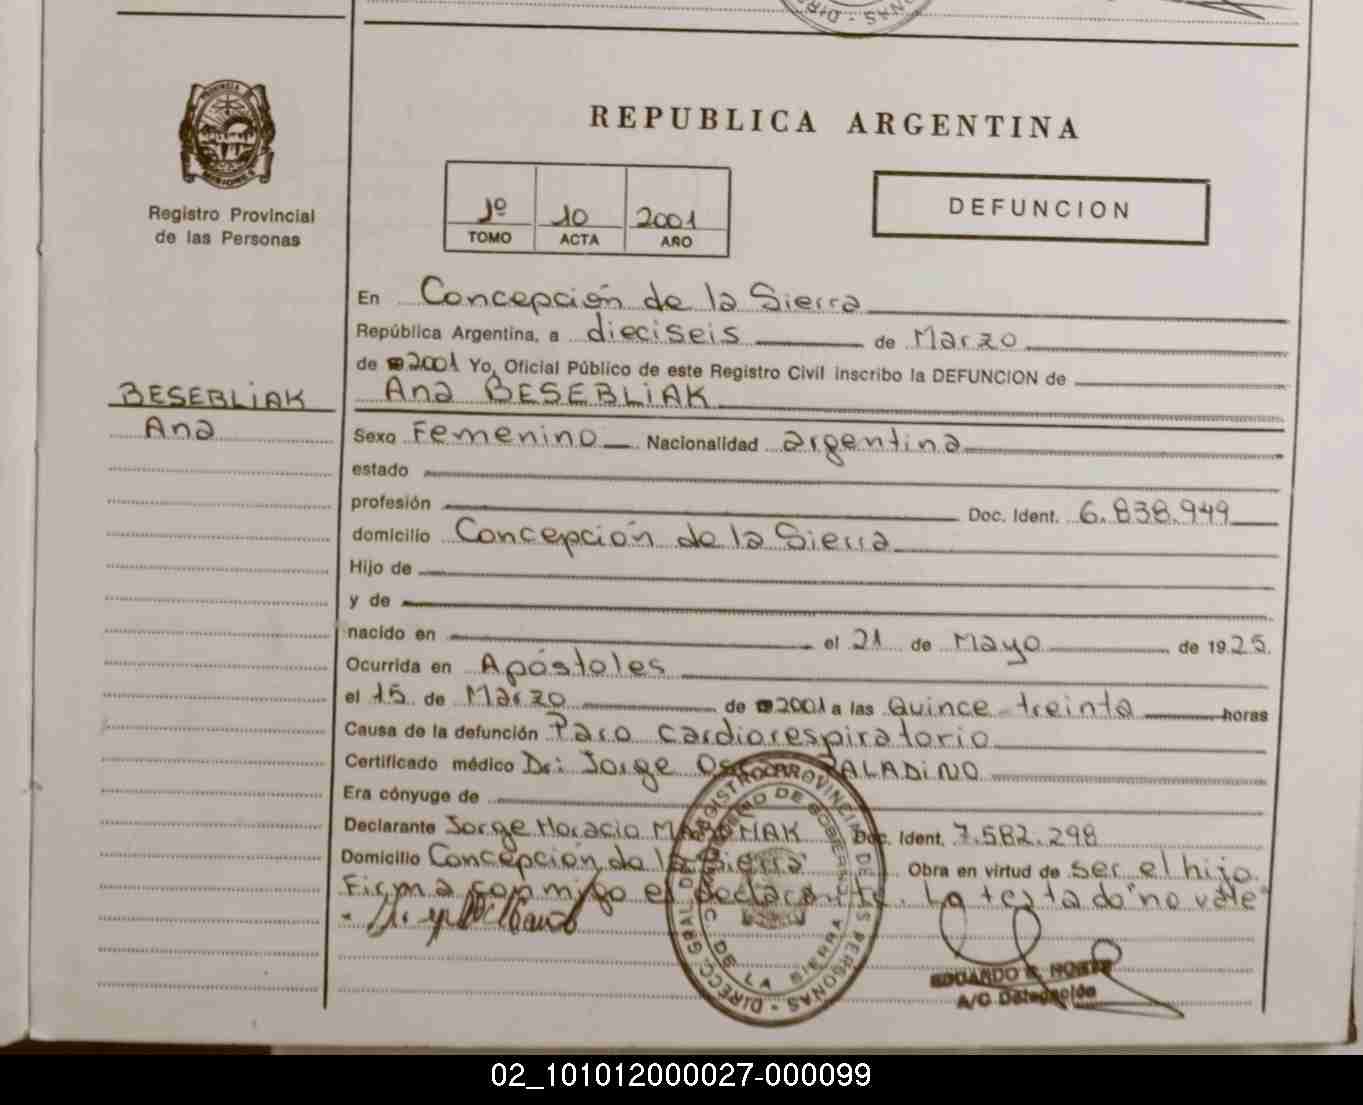 REPUBLICA ARGENTINA
Registro Provincial
de las Personas
1º 10 2001
TOMO ACTA AÑO
DEFUNCION
En Concepción de la Sierra
República Argentina, a dieciseis de Marzo
de 2001 Yo, Oficial Público de este Registro Civil inscribo la DEFUNCION de
Ana BESEBLIAK
BESEBLIAK
Ana
Sexo Femenino Nacionalidad argentina
estado
profesión Doc. Ident. 6.838.949
domicilio Concepción de la Sierra
Hijo de
y de
nacido en el 21 de Mayo de 1925
Ocurrida en Apóstoles
el 15 de Marzo de 2001 a las Quince treinta horas
Causa de la defunción Paro cardiorespiratorio
Certificado médico Dr: Jorge PALADINO
Era cónyuge de
Declarante Jorge Horacio Doc. Ident. 7.582.298
Domicilio Concepción de la Sierra Obra en virtud de ser el hijo.
Firma conmigo el Declarante. Lo testado "no vale"
REGISTRO PROVINCIAL DE LAS PERSONAS - DIRECC. GRAL.
DE LA SIERRA
EDUARDO
A/C Delegación
02_101012000027-000099